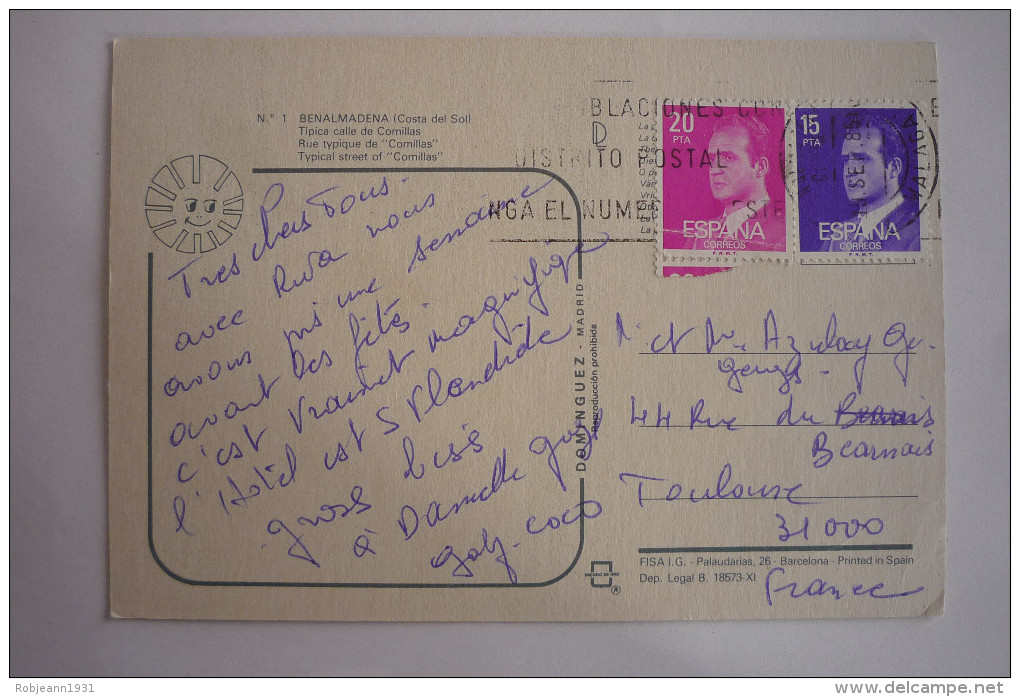 N.° 1 BENALMADENA (Costa del Sol)
Tipica calle de Comillas
Rue typique de "Comillas"
Typical street of "Comillas"
Tres chers Tous.
avec Riva nous
avons pris une semaine
avant les fêtes.
c'est vraiment magnifique
l'Hôtel est Splendide
gros bisis
à Danielle
gaby. coco
DOMINGUEZ - MADRID
Reproducción prohibida
BLACIONES CON
DISTRITO POSTAL
NGA EL NUME
20
PTA
ESPAÑA
CORREOS
F.N.M.T.
15
PTA
ESPAÑA
CORREOS
F.N.M.T.
M. et Me Azulay
44 Rue du
Bearnais
Toulouse
31000
France
FISA I.G. - Palaudarias, 26 - Barcelona - Printed in Spain
Dep. Legal B. 18573-XI
Robjeann1931
www.delcampe.net